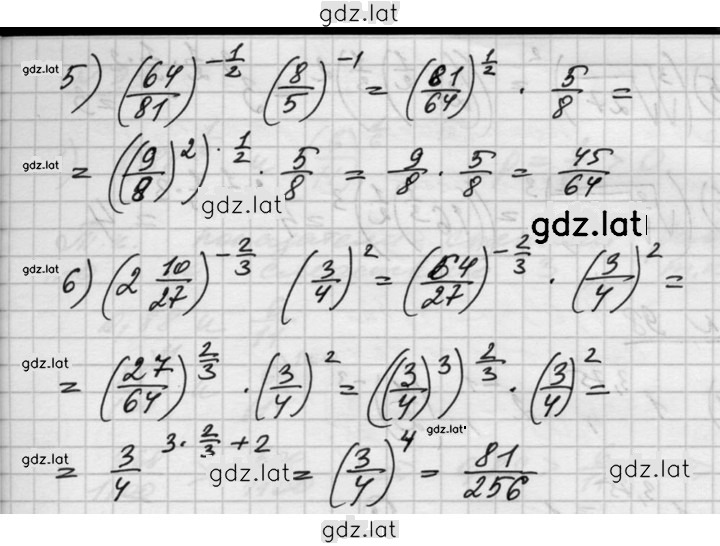 gdz.lat
gdz.lat 5) (64/81)^(-1/2) (8/5)^(-1) = (81/64)^(1/2) · 5/8 =
gdz.lat
gdz.lat = ((9/8)^2)^(·1/2) · 5/8 = 9/8 · 5/8 = 45/64
gdz.lat
gdz.lat
gdz.lat 6) (2 10/27)^(-2/3) (3/4)^2 = (64/27)^(-2/3) · (3/4)^2 =
gdz.lat = (27/64)^(2/3) · (3/4)^2 = ((3/4)^3)^(2/3) · (3/4)^2 =
gdz.lat
gdz.lat = 3/4^(3·2/3+2) = (3/4)^4 = 81/256
gdz.lat
gdz.lat
gdz.lat